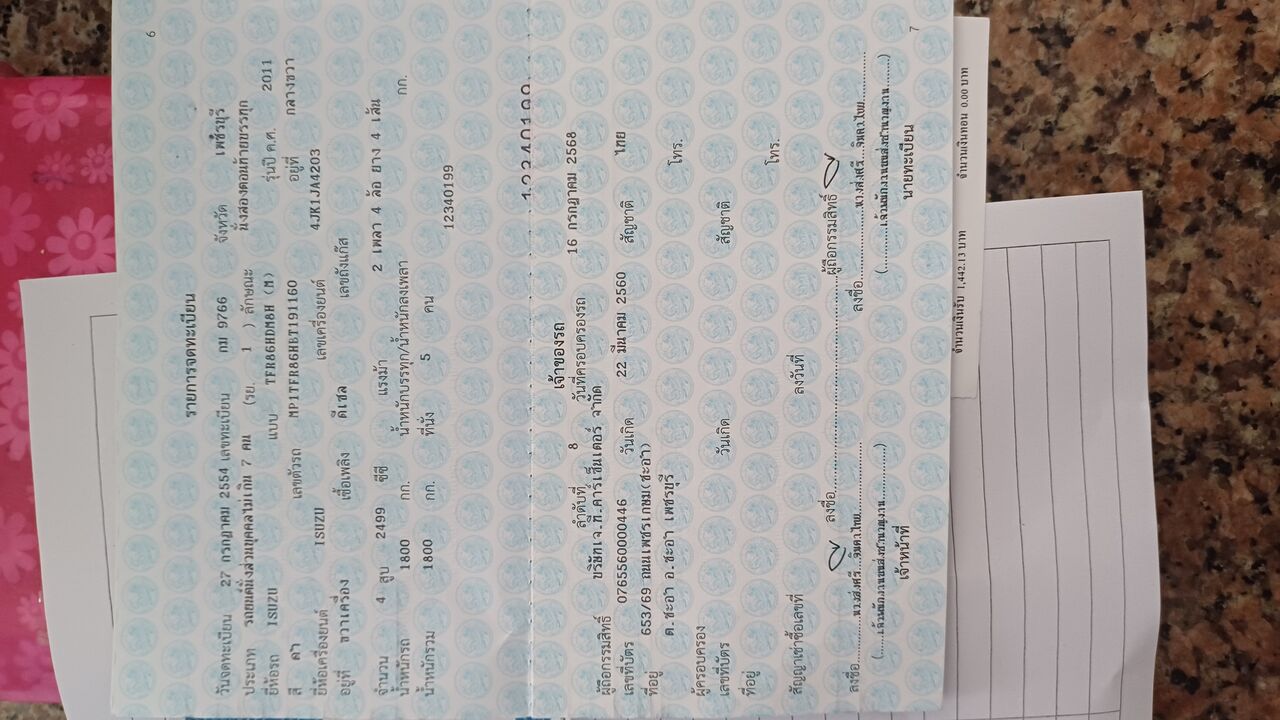 6
รายการจดทะเบียน
วันจดทะเบียน 27 กรกฎาคม 2554 เลขทะเบียน กม 9766 จังหวัด เพชรบุรี
ประเภท รถยนต์นั่งส่วนบุคคลไม่เกิน 7 คน (รย. 1 ) ลักษณะ นั่งสองตอนท้ายบรรทุก
ยี่ห้อรถ ISUZU แบบ TFR86HDM8H (M) รุ่นปี ค.ศ. 2011
สี ดำ เลขตัวรถ MP1TFR86HBT191160 อยู่ที่ กลางขวา
ยี่ห้อเครื่องยนต์ ISUZU เลขเครื่องยนต์ 4JK1JA4203
อยู่ที่ ขวาเครื่อง เชื้อเพลิง ดีเซล เลขถังแก๊ส
จำนวน 4 สูบ 2499 ซีซี แรงม้า 2 เพลา 4 ล้อ ยาง 4 เส้น
น้ำหนักรถ 1800 กก. น้ำหนักบรรทุก/น้ำหนักลงเพลา กก.
น้ำหนักรวม 1800 กก. ที่นั่ง 5 คน
12340199
เจ้าของรถ
ลำดับที่ 8 วันที่ครอบครองรถ 16 กรกฎาคม 2568
ผู้ถือกรรมสิทธิ์ บริษัทเจ.ที.คาร์เซ็นเตอร์ จำกัด
เลขที่บัตร 0765560000446 วันเกิด 22 มีนาคม 2560 สัญชาติ ไทย
ที่อยู่ 653/69 ถนนเพชรเกษม(ชะอำ) โทร.
ต.ชะอำ อ.ชะอำ เพชรบุรี
ผู้ครอบครอง
เลขที่บัตร วันเกิด สัญชาติ
ที่อยู่ โทร.
สัญญาเช่าซื้อเลขที่ ลงวันที่
ลงชื่อ ผู้ถือกรรมสิทธิ์
ลงชื่อ ลงชื่อ
เจ้าหน้าที่ นายทะเบียน
7
จำนวนเงินรับ 1,442.13 บาท จำนวนเงินทอน 0.00 บาท